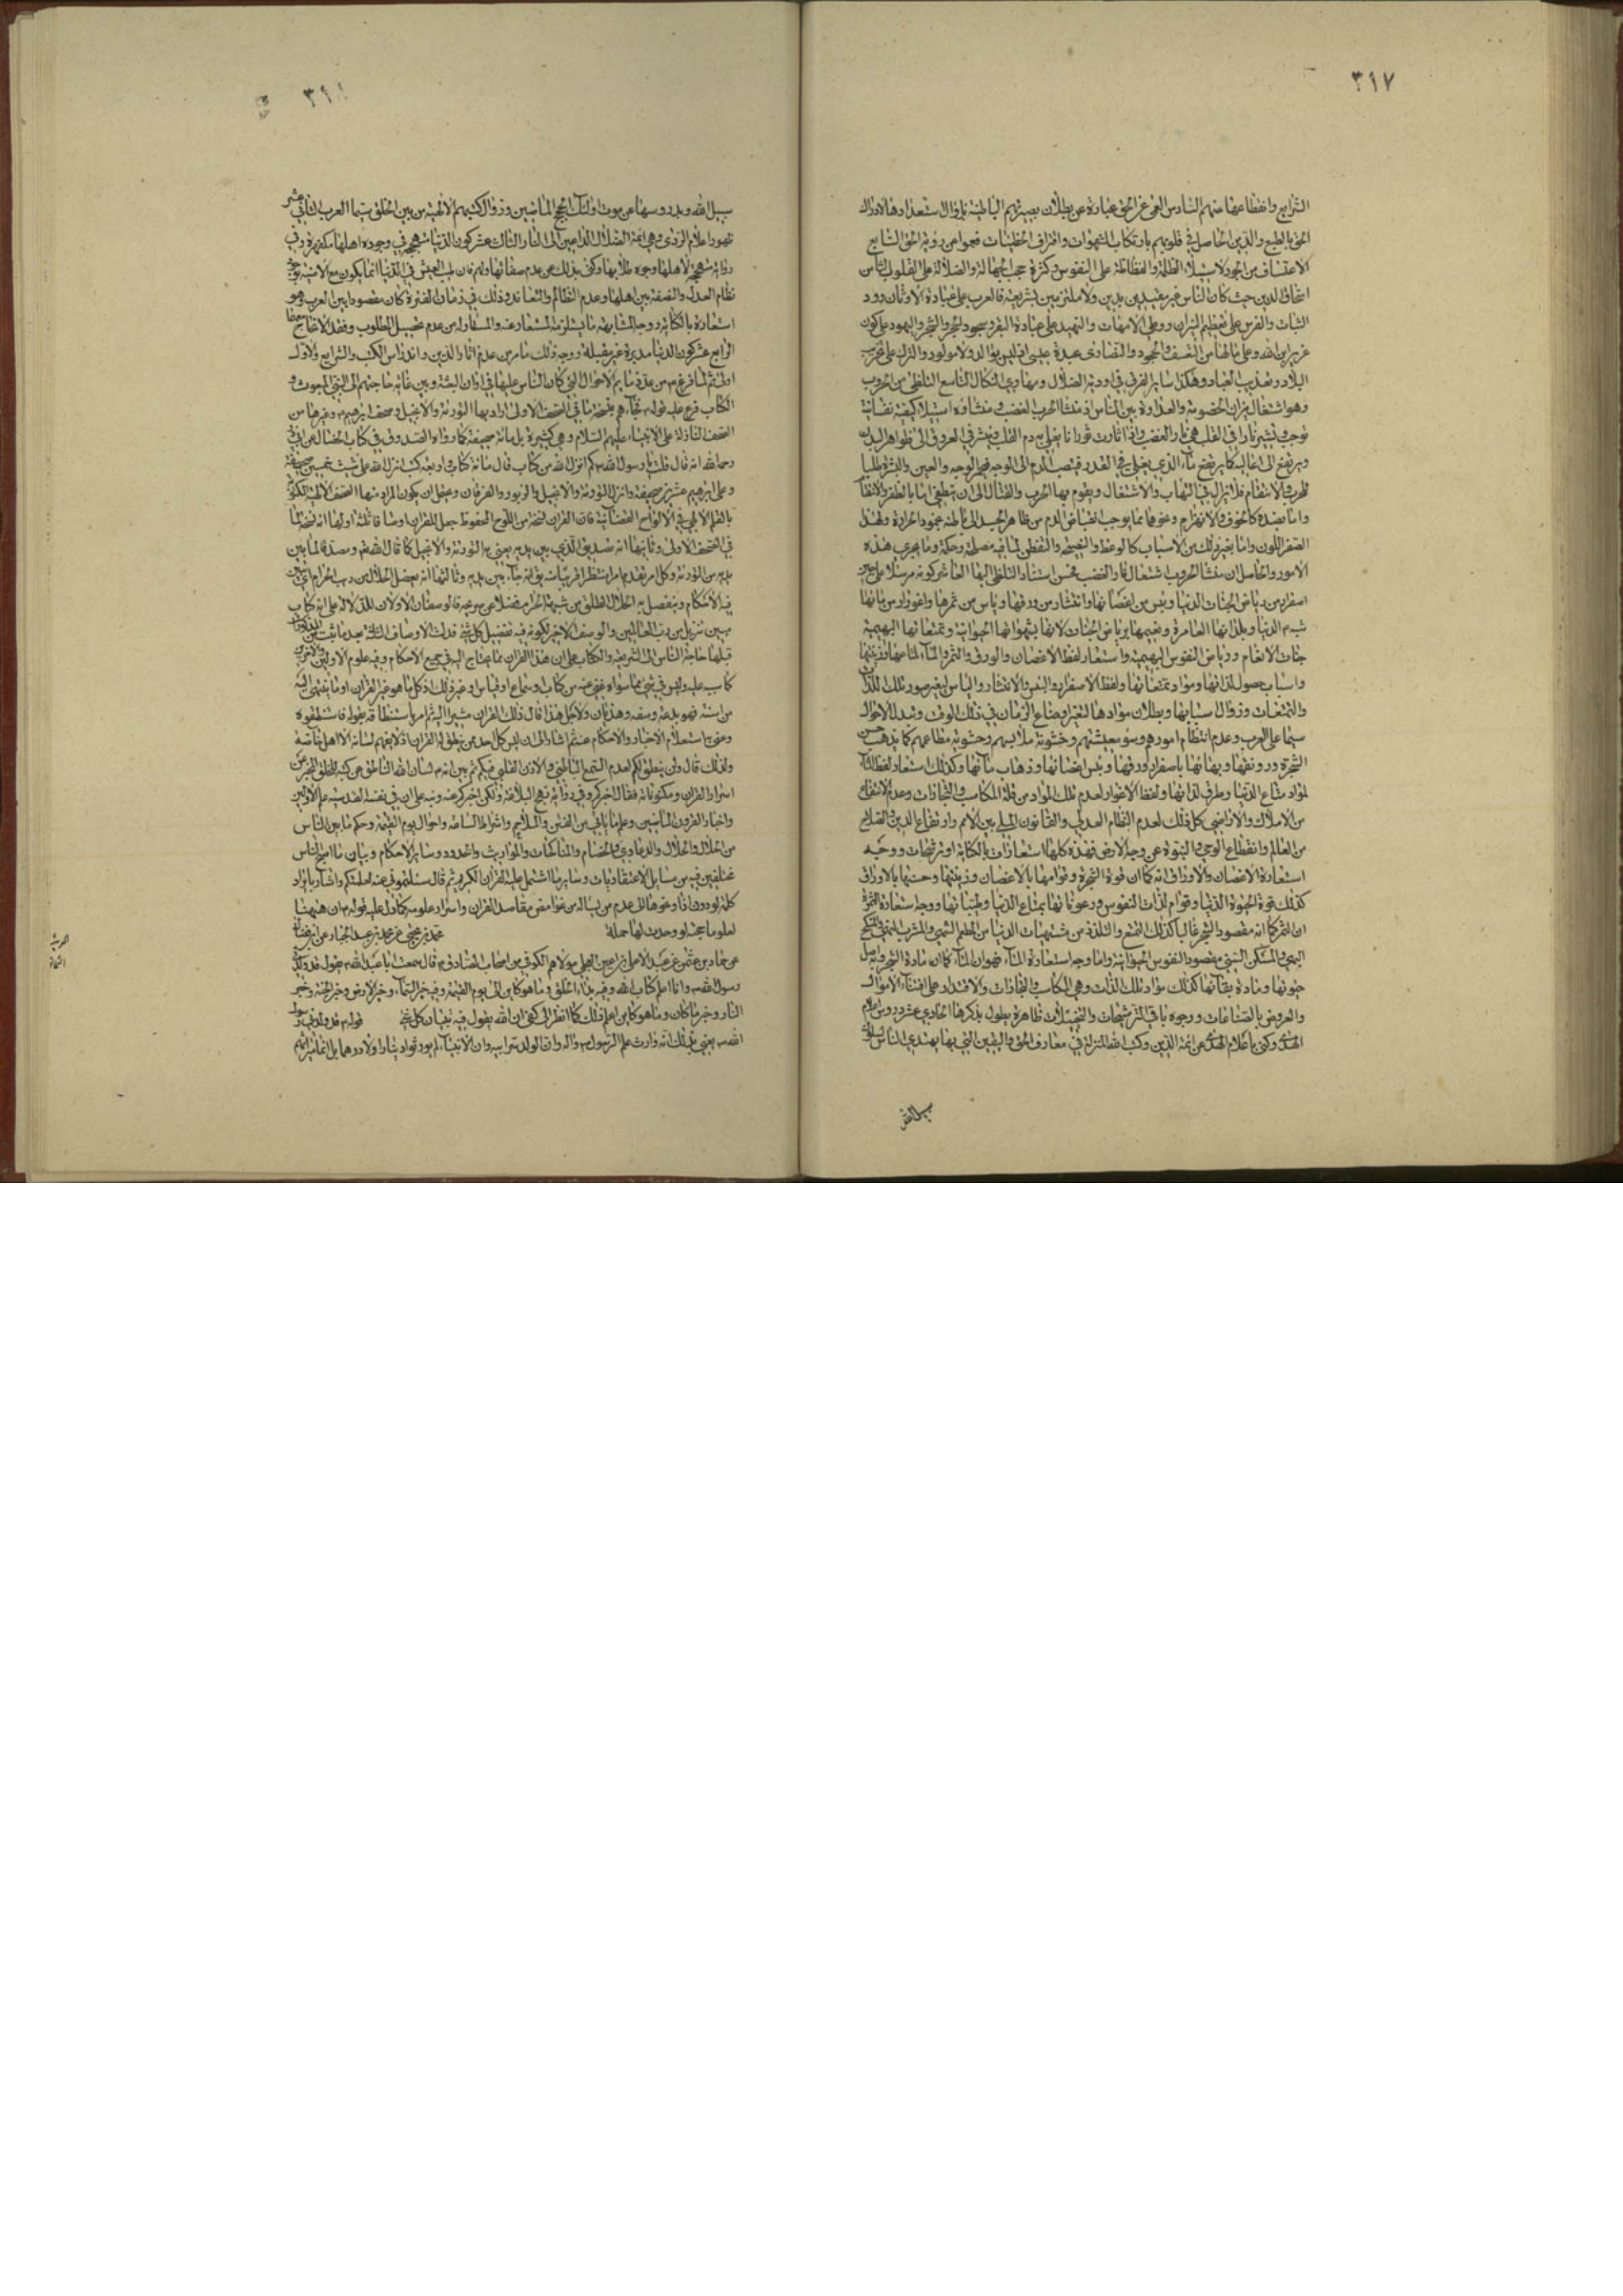 ٣١٧
الشرايع وانقطاعها عنهم السادس العمى عن الحق عبارة عن بطلان بصيرتهم الباطنة بزوال استعدادها لادراك
الحق بالطبع والدين الحاصل في قلوبهم بارتكاب الشهوات واقتراف الخطيئات فعموا عن رؤية الحق السابع
الاعتساف من الجور لاستيلاء الظلمة على النفوس وكثرة حجب الجهالة والضلالة على القلوب الثامن
امتحاق الدين حيث كان الناس غير مقيدين بدين ولا ملتزمين بشريعة فالعرب على عبادة الاوثان
والفرس على تعظيم النيران ووطى الامهات على عبادة البقر وسجود الحجر والشجر واليهود على كون
عزير ابن الله وعلى من التعسف والجحود والنصارى عبدة عيسى والترك على تخريب
البلاد وتعذيب العباد وهكذا ساير الفرق في اودية الضلال ومهاوي النكال التاسع التلظى من الحروب
وهو اشتعال نيران الخصومة والعداوة بين الناس اذ منشا الحرب الغضب ومنشاؤه استيلاء كيفية نفسانية
في القلب هي نار الغضب واذا ثارت ثورانا يغلي به دم القلب وينتشر في العروق الى ظواهر البدن
ويرتفع الى اعاليه كما يرتفع الماء الذي يغلي في القدر فينصب الدم الى الوجه فيحمر الوجه والعين والبشرة طلبا
للحرب والانتقام فلا يزال في التهاب والاشتعال ويقوم بها الحرب والقتال الى ان ينطفي اما بالظفر والانتقام
واما بضده كالخوف والانهزام ونحوهما مما يوجب انقباض الدم من ظاهر الجسد الى باطنه
اللون واما بغير ذلك من الاسباب كالوعظ والنصيحة والتفطن لما فيه مصلحة وحكمة وما يجري هذه
الامور والحاصل ان منشا الحروب اشتعال نار الغضب فحسن اسناد التلظى اليها العاشر كونه مرسلا على حين
اصفرار من رياض الجنات الدنيا ويبس من اغصانها وانتثار من ورقها وياس من ثمرها واغورار من مائها
شبه الدنيا وبلدانها العامرة ونعيمها برياض الجنات لانها بشهواتها الحيوانية وتمتعاتها البهيمية
جنات الانعام ورياض النفوس البهيمية واستعار لفظ الاغصان والورق والثمر والماء لمتاعها وزينتها
واسباب حصول لذاتها ومواد تمتعاتها ولفظ الاصفرار واليبس والانتثار والياس لتغير صور تلك اللذات
والتمتعات وزوال اسبابها وبطلان موادها لتغير اوضاع الزمان في ذلك الوقت وتبدل الاحوال
سيما على العرب وعدم انتظام امورهم وسوء معيشتهم وخشونة ملابسهم وجشوبة مطاعمهم كما يذهب حسن
الشجرة ورونقها وبهائها باصفرار ورقها ويبس اغصانها وذهاب مائها وكذلك استعار لفظ الماء
لمواد متاع الدنيا وطرق لذاتها ولفظ الاغورار لعدم تلك المواد من قلة المكاسب والتجارات وعدم الانتفاع
من الاملاك والاراضي كل ذلك لعدم النظام العدلي والقانون الملي بين الامم وارتفاع الدين والصلاح
من العالم وانقطاع الوحي والنبوة عن وجه الارض فهذه كلها استعارات بالكناية او ترشيحات ووجه
استعارة الاغصان والاوراق انه كما ان قوة الشجرة وقوامها بالاغصان وزينتها وحسنها بالاوراق
كذلك قوة الحيوة الدنيا وقوام لذات النفوس ورعوناتها بمتاع الدنيا وطيباتها ووجه استعارة الثمرة
ان الثمر كما انه مقصود الشجر غالبا كذلك التمتع والتلذذ من مشتهيات الدنيا من المطعم الشهي والمشرب الهني والمنكح
البهي والمسكن السني مقصود النفوس الحيوانية واما وجه استعارة الماء فهو ان الماء كما انه مادة الشجر وبه اصل
حيوتها ومادة بقائها كذلك مواد تلك اللذات وهي المكاسب والتجارات والاقتدار على اقتناء الاموال
والعروض بالصناعات ووجوه باقي الترشيحات والتخييلات ظاهرة يطول بذكرها الحادي عشر دروس اعلام
الهدى وكنى باعلام الهدى عن ائمة الدين وكتب الله المنزلة في معارف الحق واليقين التي بها يهتدي الناس سلوك
سبيل الله
سبيل الله وبدروسها عن موت اولئك الحجج الماضيين وزوال كتبهم الالهية من بين الخلق سيما العرب الثاني عشر
ظهور اعلام الردى وهي ائمة الضلال الداعين الى النار الثالث عشر كون الدنيا متهجمة في وجوه اهلها مكفهرة وفي
نظام العدل والنصفة بين اهلها وعدم التظالم والتعاند وذلك في زمان الفترة كان مفقودا بين العرب وهو
استعارة بالكناية ووجه المشابهة ما يستلزمه المستعار عنه والمستعار له من عدم تحصيل المطلوب
الرابع عشر كون الدنيا مدبرة غير مقبلة ووجه ذلك ما مر من عدم اثار الدين واندراس الكتب والشرايع والاول
اولى ثم لما فرغ من عد ما يم الاحوال التي كان الناس عليها في اوان البعثة وبين غاية حاجتهم الى النبي المبعوث و
الكتاب فرع عليه قوله فجاءهم بنسخة ما في الصحف الاولى اراد بها التورية والانجيل وصحف ابرهيم وغيرها من
الصحف النازلة على الانبياء عليهم السلام وهي كثيرة بل مائة صحيفة كما رواه الصدوق في كتاب الخصال عن ابي ذر
رحمه الله انه قال قلت يا رسول الله كم انزل الله من كتاب قال مائة كتاب واربعة كتب انزل الله على شيث خمسين صحيفة
وعلى ابرهيم عشرين صحيفة وانزل التورية والانجيل والزبور والفرقان ويحتمل ان يكون المراد منها الصحف الالهية المكتوبة
بالقلم الالهي في الالواح القضائية فان القران نسخة من اللوح المحفوظ جعل للقران اوصافا ثلثة اولها انه نسخة لما
في الصحف الاولى وثانيها انه تصديق الذي بين يديه يعني به التورية والانجيل كما قال الله تعالى ومصدقا لما بين
يديه من التورية وكل امر تقدم امرا منتظرا قريبا منه يقال انه جاء بين يديه وثالثها انه تفصيل الحلال من ريب الحرام اي يبين
فيه الاحكام وينفصل به الحلال المطلق من شبهة الحرام فضلا عن صريحه فالوصفان الاولان للدلالة على انه كتاب
مبين تنزيل من رب العالمين والوصف الاخير لكونه فيه تفصيل كل شئ فدلت الاوصاف الثلثة بعد ما ثبت من
قبلها حاجة الناس الى الشريعة والكتاب على ان هذا القران مما يحتاج اليه في جميع الاحكام وفيه علوم الاولين والاخرين
من السنة فهو بدعة وسفه وهذيان ولاجل هذا قال ذلك القران مشيرا اليه ثم امر باستنطاقه بقوله فاستنطقوه
وعنى به استعلام الاخبار والاحكام عنه ثم اشار الى ان ليس كل احد ممن ينطق له القران اذ لا يفهم لسانه الا اهل الله خاصة
ولذلك قال ولن ينطق لكم لعدم السمع الباطني والاذن القلبي فيكم ثم بين انه لسان الله الناطق عن كتبه للخلق المخبر عن
اسرار القران ومكنوناته فقال اخبركم وفي رواية نهج البلاغة ولكن اخبركم عنه ونبه على ان في نفسه القدسية علم الاولين
واخبار القرون الماضين وعلم ما ياتي من الفتن والملاحم واشراط الساعة واحوال يوم القيمة وحكم ما بين الناس
من الحلال والدعاوي والخصام والمناكحات والمواريث والحدود وساير الاحكام وبيان ما اصبح الناس
مختلفين فيه من مسايل الاعتقاديات وساير ما اشتمل عليه القران الكريم ثم قال سئلتموني عنه لعلمتكم واشار بايراد
كلمة لو دون اذا ونحوها الى عدم من يساله من غوامض مقاصد القران واسرار علومه كما دل عليه قوله ان هيهنا
لعلوما جمة لو وجدت لها حملة محمد بن يحيى عن محمد بن عبد الجبار عن ابن فضال
عن حماد بن عثمن عن عبد الاعلى بن اعين العجلي مولاهم الكوفي من اصحاب الصادق قال سمعت ابا عبد الله يقول قد ولدني
رسول الله وانا اعلم كتاب الله وفيه بدء الخلق وما هو كاين الى يوم القيمة وفيه خبر السماء وخبر الارض وخبر الجنة وخبر
النار وخبر ما كان وما هو كاين اعلم ذلك كما انظر الى كفي ان الله يقول فيه تبيان كل شئ قوله قد ولدني رسول
الله يعني بذلك انه وارث علم الرسول واله وان الولد سر ابيه وان الانبياء لم يورثوا دينارا ولا درهما بل
الحديث
الثامن